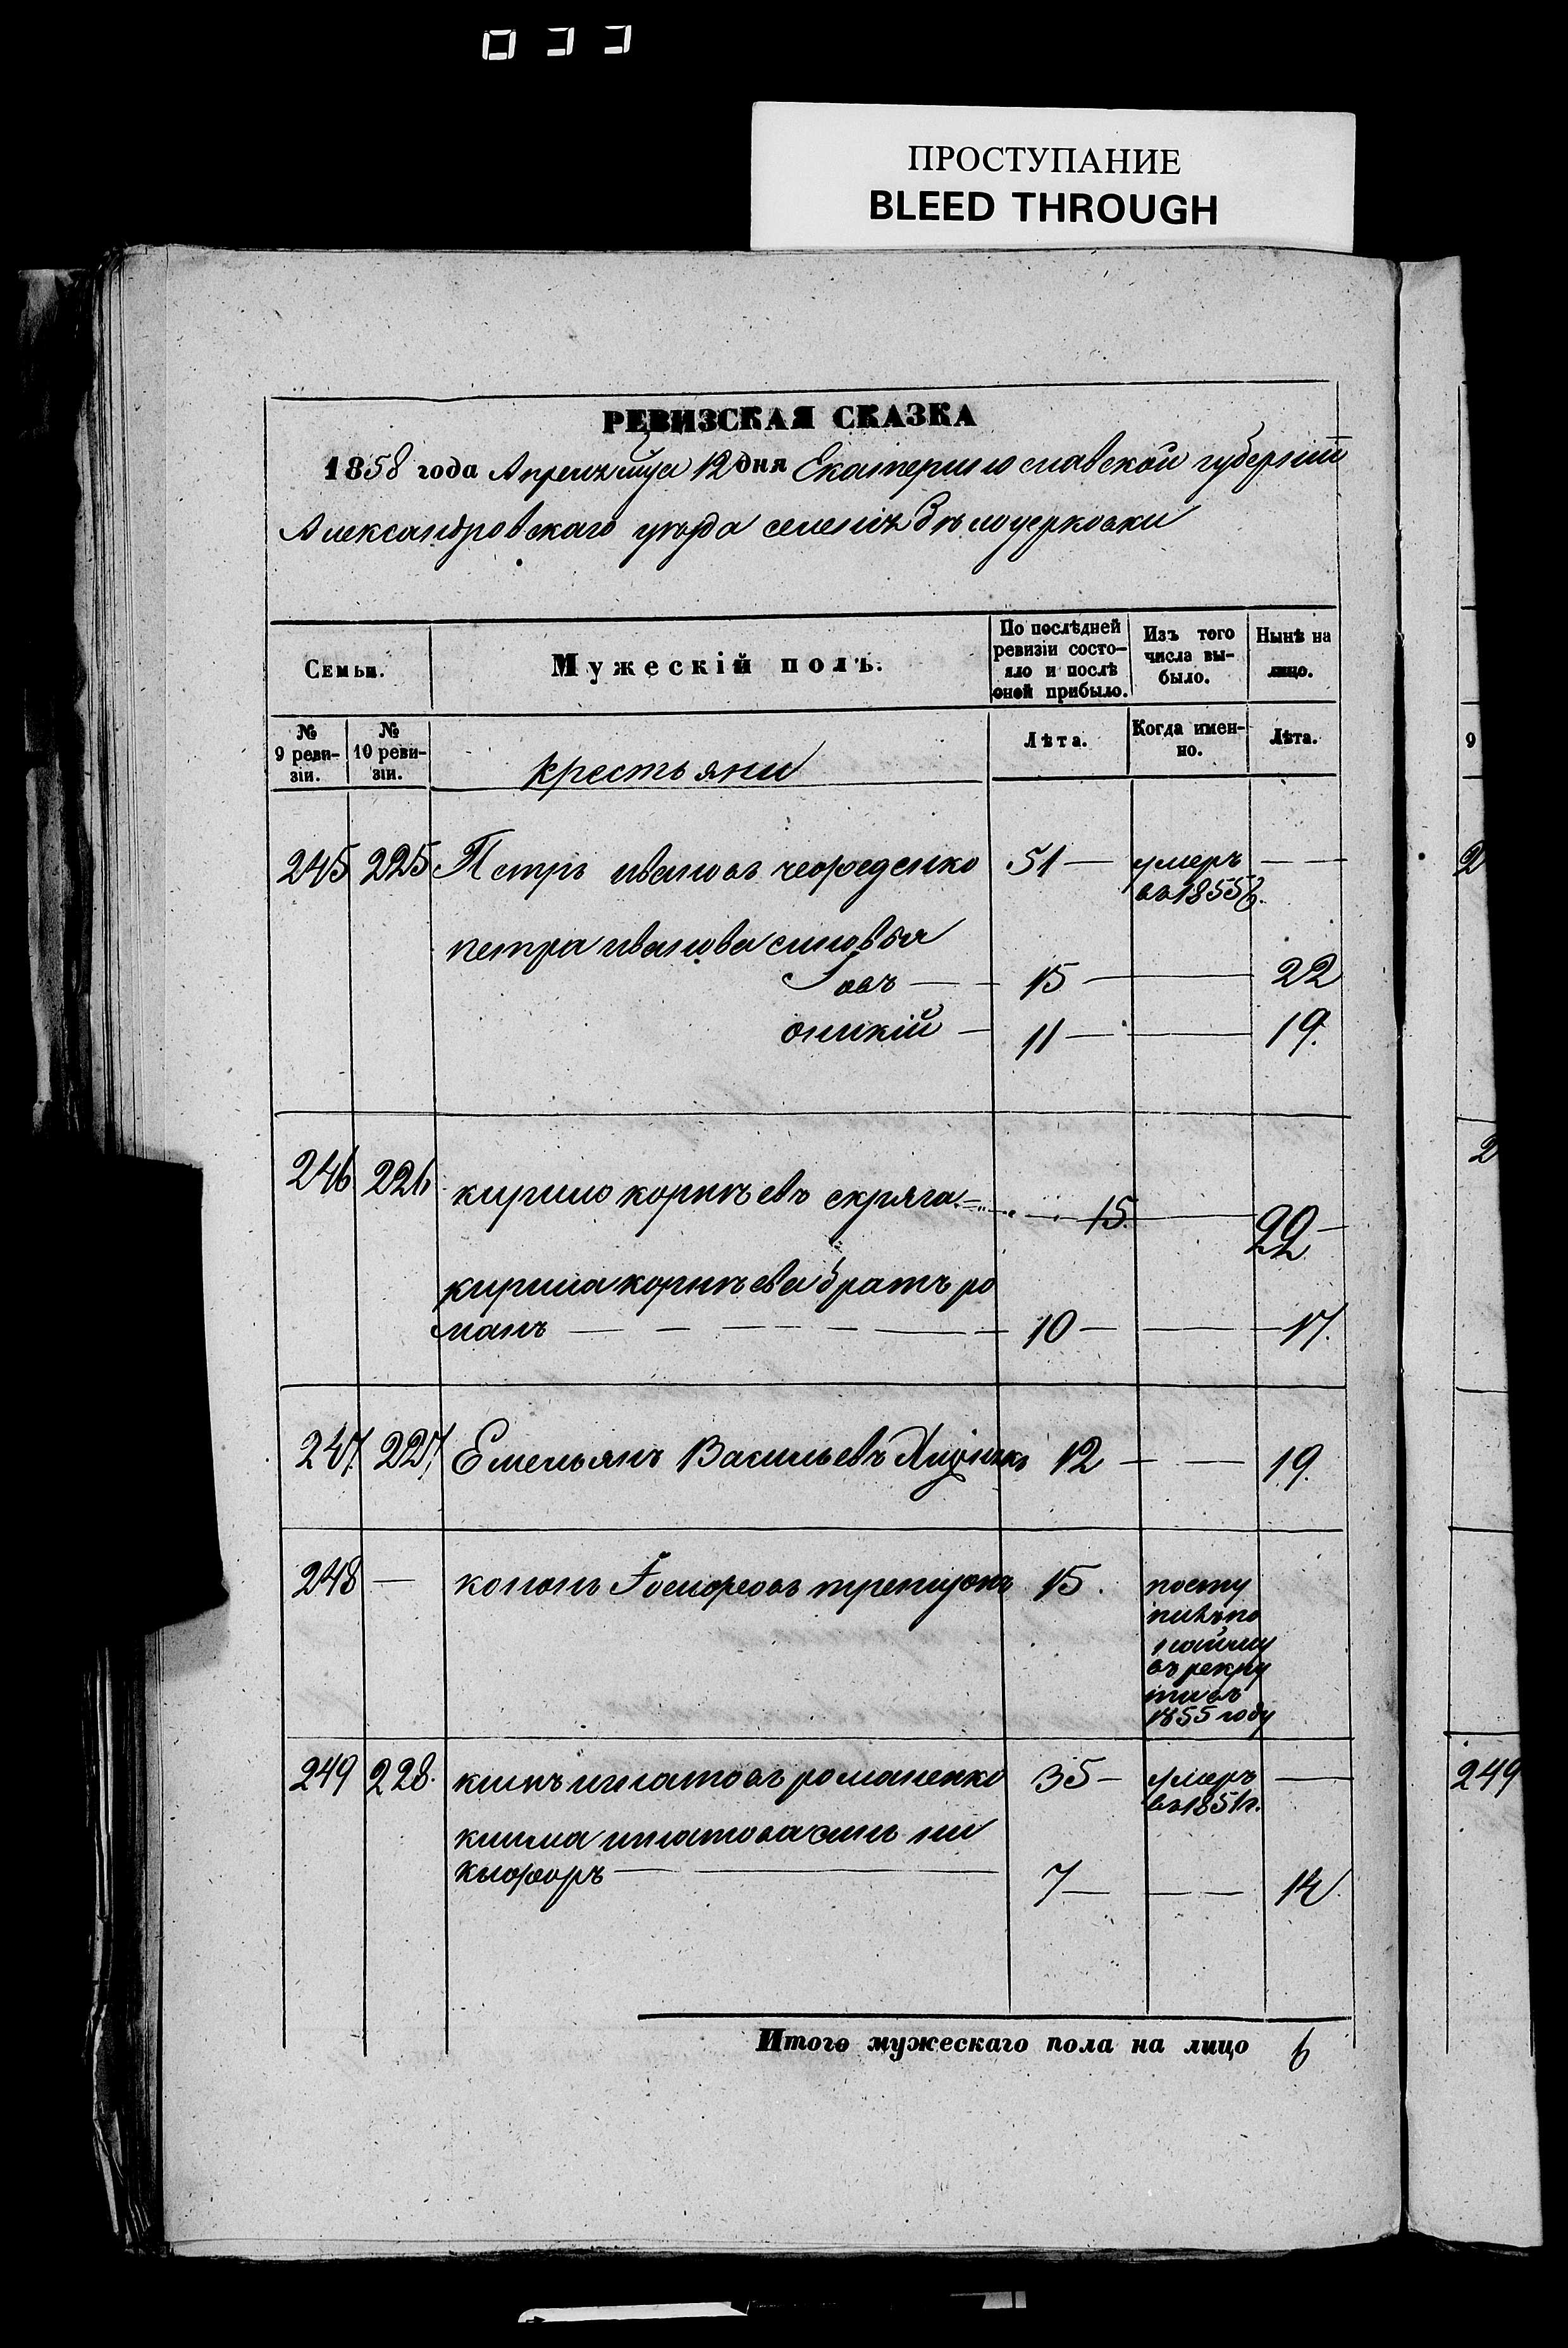 033
ПРОСТУПАНИЕ
BLEED THROUGH
РЕВИЗСКАЯ СКАЗКА
1858 года Апреля мца 12 дня Екатеринославской губерніи
Александровскаго уезда селенія Бѣлоцерковки
Семьи.
Мужескій полъ.
По послѣдней ревизіи состо-
яло и послѣ
оной прибыло.
Изъ того
числа вы-
было.
Нынѣ на
лицо.
№
9 реви-
зіи.
№
10 реви-
зіи.
крестьяни
Лѣта.
Когда имен-
но.
Лѣта.
9
245 225 Петръ ивановъ 51 — умеръ — —
въ 1855г.
петра иванова синовья
Іовъ — — 15 — — 22
оникій — 11 — — 19.
246 226 кирило корнѣевъ скряга — 15. — 22 —
кирила корнѣева братъ ро
манъ — — — — — — 10 — — — 17.
247. 227. Емельянъ Васильевъ 12 — — 19.
248 — кононъ 15. посту
пилъ по
найму
въ рекру
ти въ
1855 году
249 228. климъ игнатовъ романенко 35 — умеръ —
въ 1851г.
клима игнатова синъ ни
кыфоръ — — 7 — — — 14.
Итого мужескаго пола на лицо 6
249